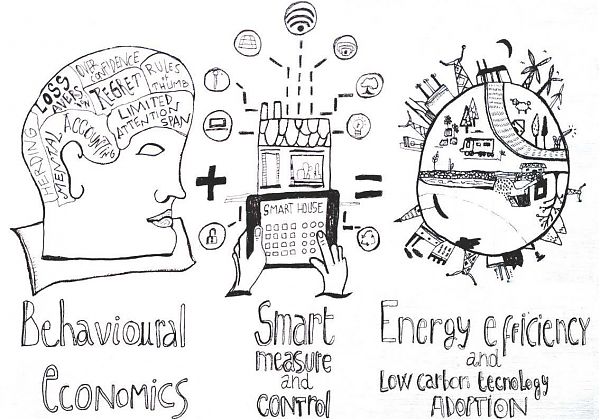 OVER
CONFIDENCE
LOSS
AVERSION
REGRET
RULES
OF
THUMB
LIMITED
ATTENTION
SPAN
HERDING
MENTAL
ACCOUNTING
+
SMART HOUSE
=
Behavioural
economics
Smart
measure
and
control
Energy efficiency
and
Low carbon tecnology
ADOPTION